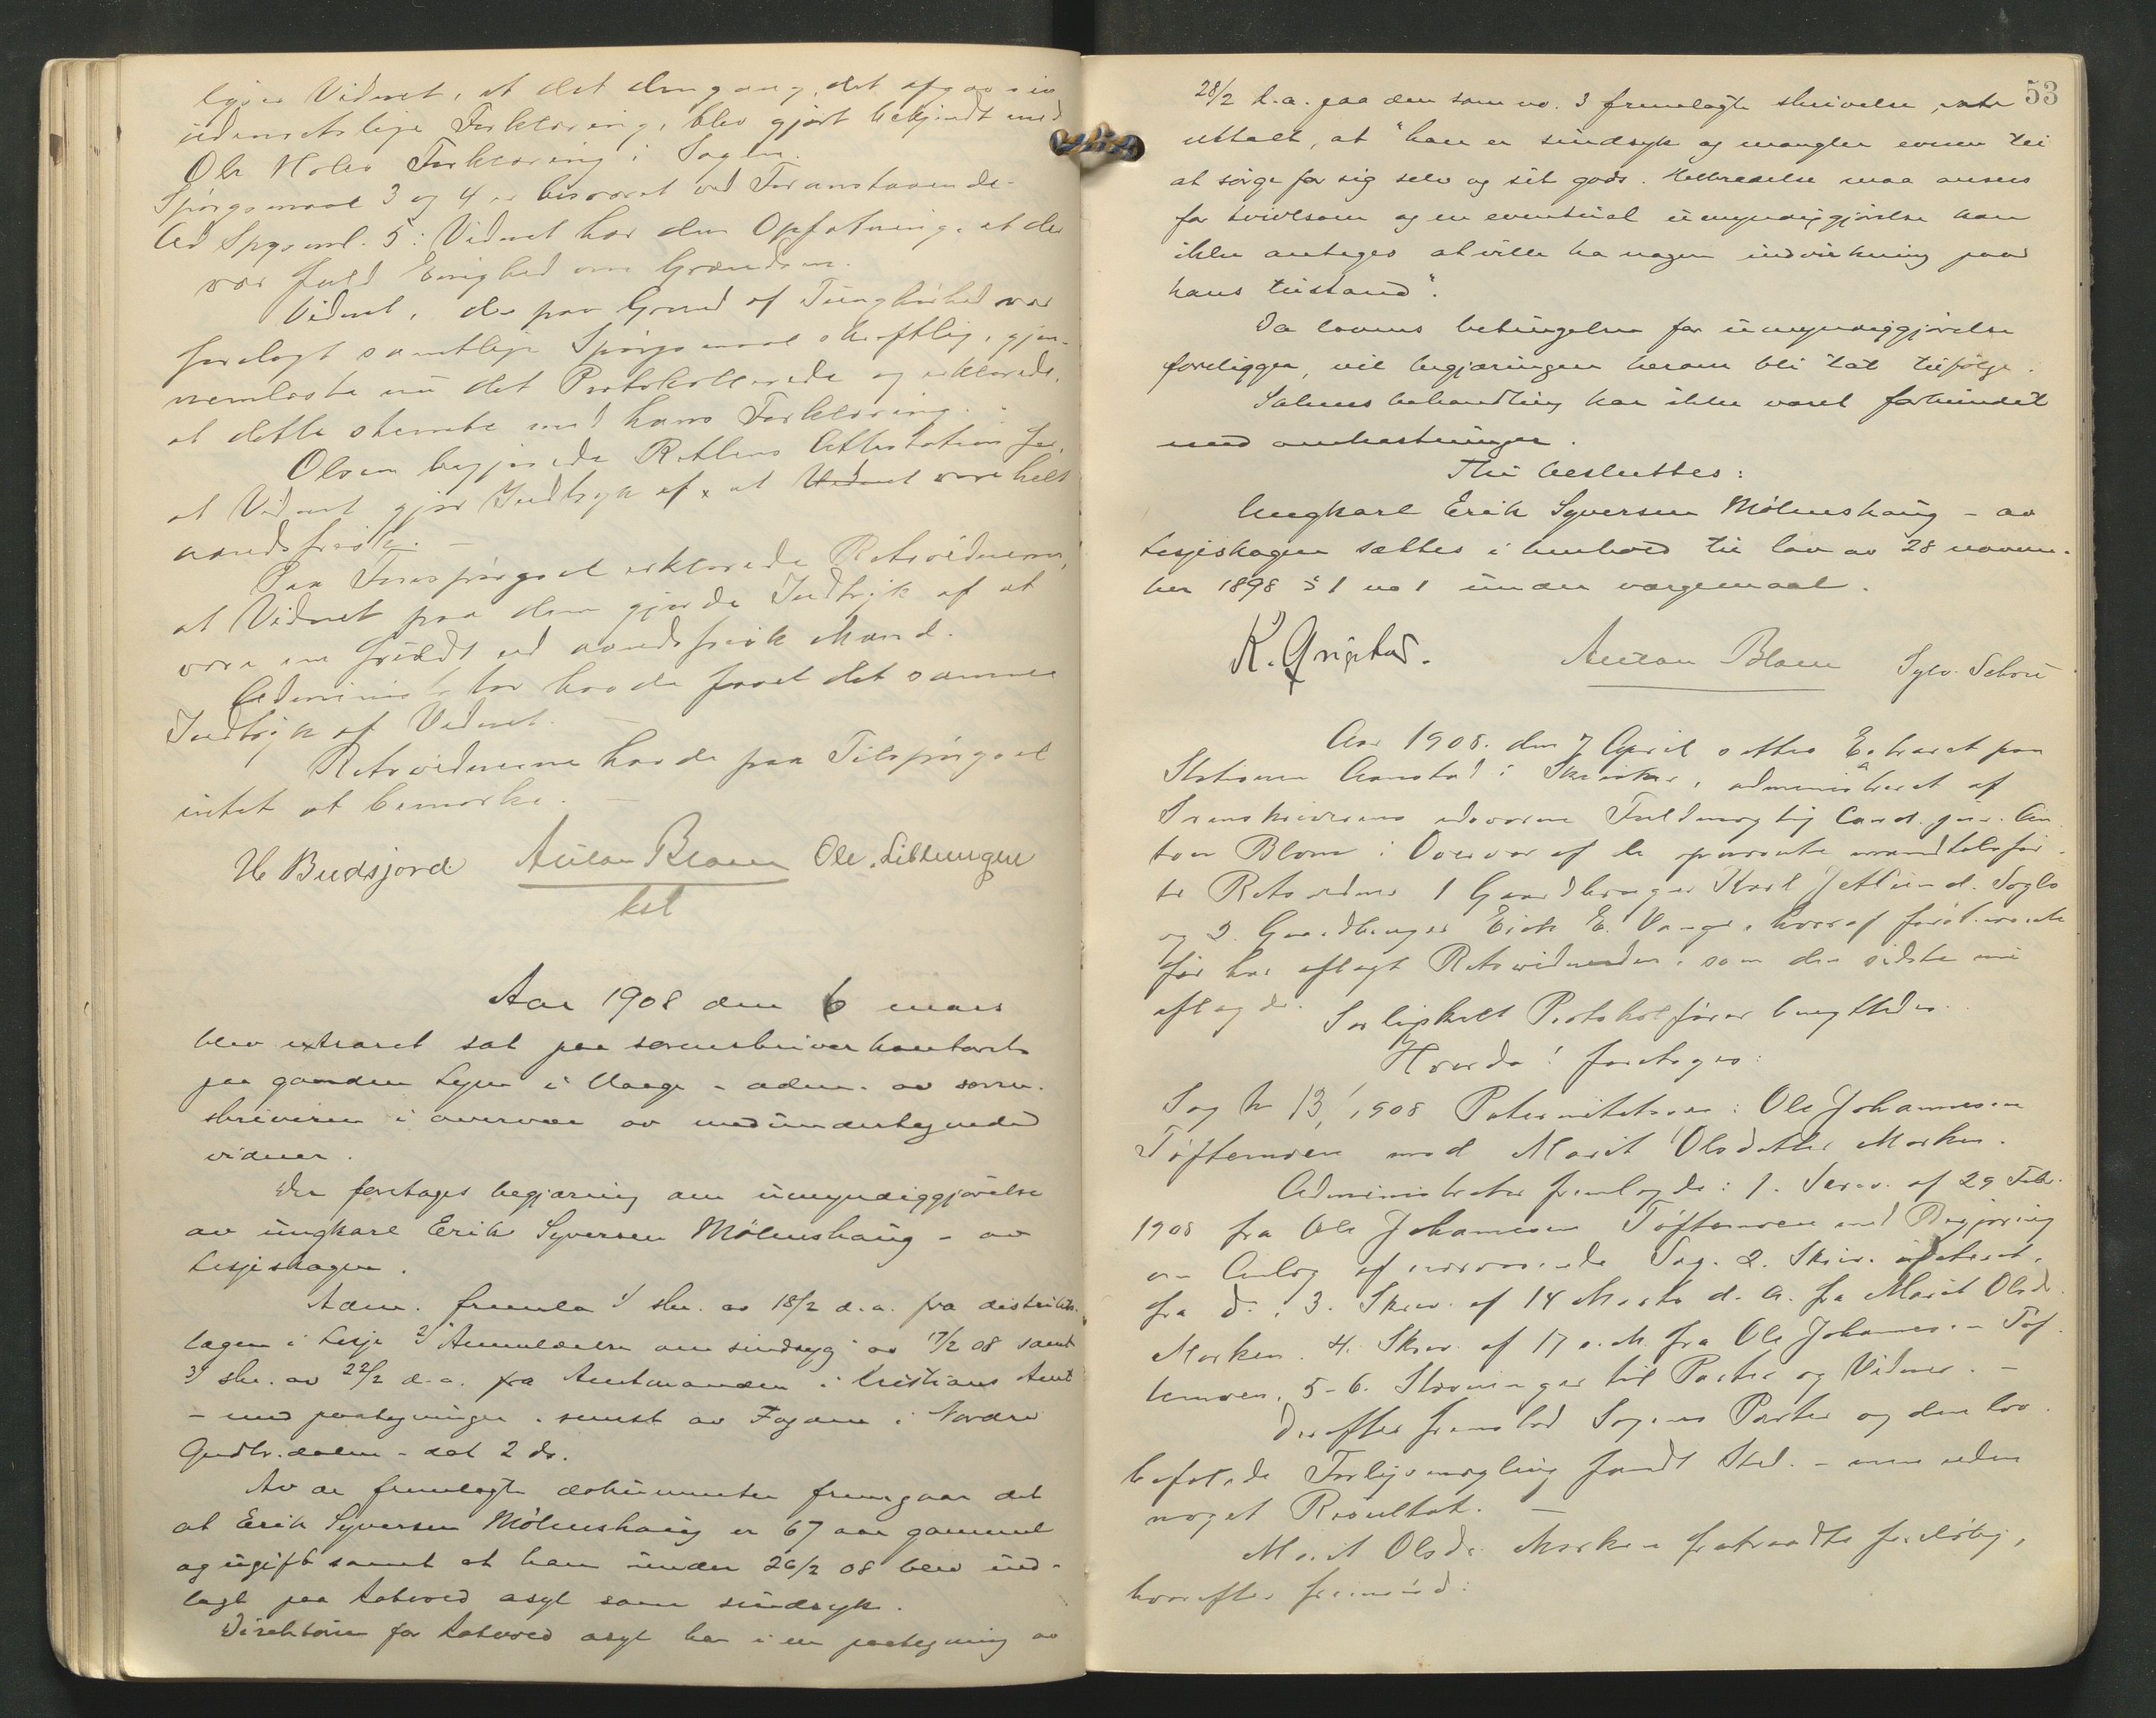 Vidnet, at det dengang, det afgav sin
udenretslige Forklaring, blev gjort bekjendt med
Ole Holes Forklaring i Sagen.
Spørgsmaal 3 og 4 er besvaret ved Foranstaaende.
Ad Spgsml. 5: Vidnet har den Opfatning, at der
var fuld Enighed om Grændsen.
Vidnet, der paa Grund af Tunghørhed var
forelagt samtlige Spørgsmaal skriftlig, gjen-
nemlæste nu det Protokollerede og erklærede,
at dette stemte med hans Forklaring.
Olsen begjærede Rettens Attestation for,
at Vidnet gjør Indtryk af, at Vidnet være helt
aandsfrisk. –
Paa Forespørgsel erklærede Retsvidnerne,
at Vidnet paa dem gjorde Indtryk af at
være en aandsfrisk Mand.
Administrator havde faaet det samme
Indtryk af Vidnet. –
Retsvidnerne havde paa Tilspørgsel
intet at bemærke. –
H Budsjord Anton Blom Ole Lilleengen
kst
Aar 1908 den 6 mars
blev extraret sat paa sorenskriverkontoret
paa gaarden i Vaage – adm. av soren-
skriveren i overvær av medundertegnede
vidner.
Der foretages begjæring om umyndiggjørelse
av ungkarl Erik Syversen Mølmshaug – av
Lesjeskogen.
Adm. fremla 1) skr. av 18/2 d.a. fra distrikts-
lægen i Lesje 2) "Anmeldelse om sindsyg" av 17/2 08 samt
3) skr. av 22/2 d.a. fra Amtmanden i Kristians Amt
– med paategninger, senest av Fogden i Nordre
Gudbr.dalen – dat 2 ds.
Av de fremlagte dokumenter fremgaar det
at Erik Syversen Mølmshaug er 67 aar gammel
og ugift samt at han under 26/2 08 blev ind-
lagt paa Rotvold asyl som sindsyk.
Direktøren for Rotvold asyl har i en paategning av
53
28/2 d.a. paa den som no. 3 fremlagte skrivelse
uttalt, at "han er sindsyk og mangler evnen til
at sørge for sig selv og sit gods. Helbredelse maa ansees
for tvivlsom og en eventuel umyndiggjørelse kan
ikke antages at ville ha nogen indvirkning paa
hans tilstand".
Da lovens betingelser for umyndiggjørelse
foreligger, vil begjæringen herom bli tat tilfølge.
Sakens behandling har ikke været forbundet
med omkostninger.
Thi besluttes:
Ungkarl Erik Syversen Mølmshaug – av
Lesjeskogen sættes i henhold til lov av 28 novem-
ber 1898 § 1 no 1 under værgemaal.
K. Anton Blom Sylv.
Aar 1908. den 7 April sattes Extraret paa
Stationen Aanstad i Skiaker, administreret af
Sorenskriverens edsvorne Fuldmægtig Cand. jur. An-
ton Blom i Overvær af de opnævnte mandtalsfør-
te Retsvidner 1 Gaardbruger Karl Jetlund.
og 2. Gaardbruger Erik E. hvoraf førstnævnte
før har aflagt Retsvidneeden, som den sidste nu
aflagde. Særskilt Protokolfører benyttedes
Hvorda! foretoges:
Sag No 13, 1908 Paternitetssag: Ole Johannesen
Tøftemoen mod Marit Olsdatter Marken.
Administrator fremlagde: 1. Skriv. af 29 Febr.
1908 fra Ole Johannesen Tøftemoen med Begjæring
om Anlæg af nærværende Sag. 2. Skriv. udateret,
fra d:, 3. Skriv. af 14 Marts d. A. fra Marit Olsdr.
Marken. 4. Skriv. af 17 s. M. fra Ole Johannesen Tøf-
temoen, 5–6. Stævninger til Parter og Vidner. –
Derefter fremstod Sagens Parter og den lov-
befalede Forligsmægling fandt Sted. – men uden
noget Resultat. –
Marit Olsdr. Marken fratraadte foreløbig,
hvorefter fremstod: